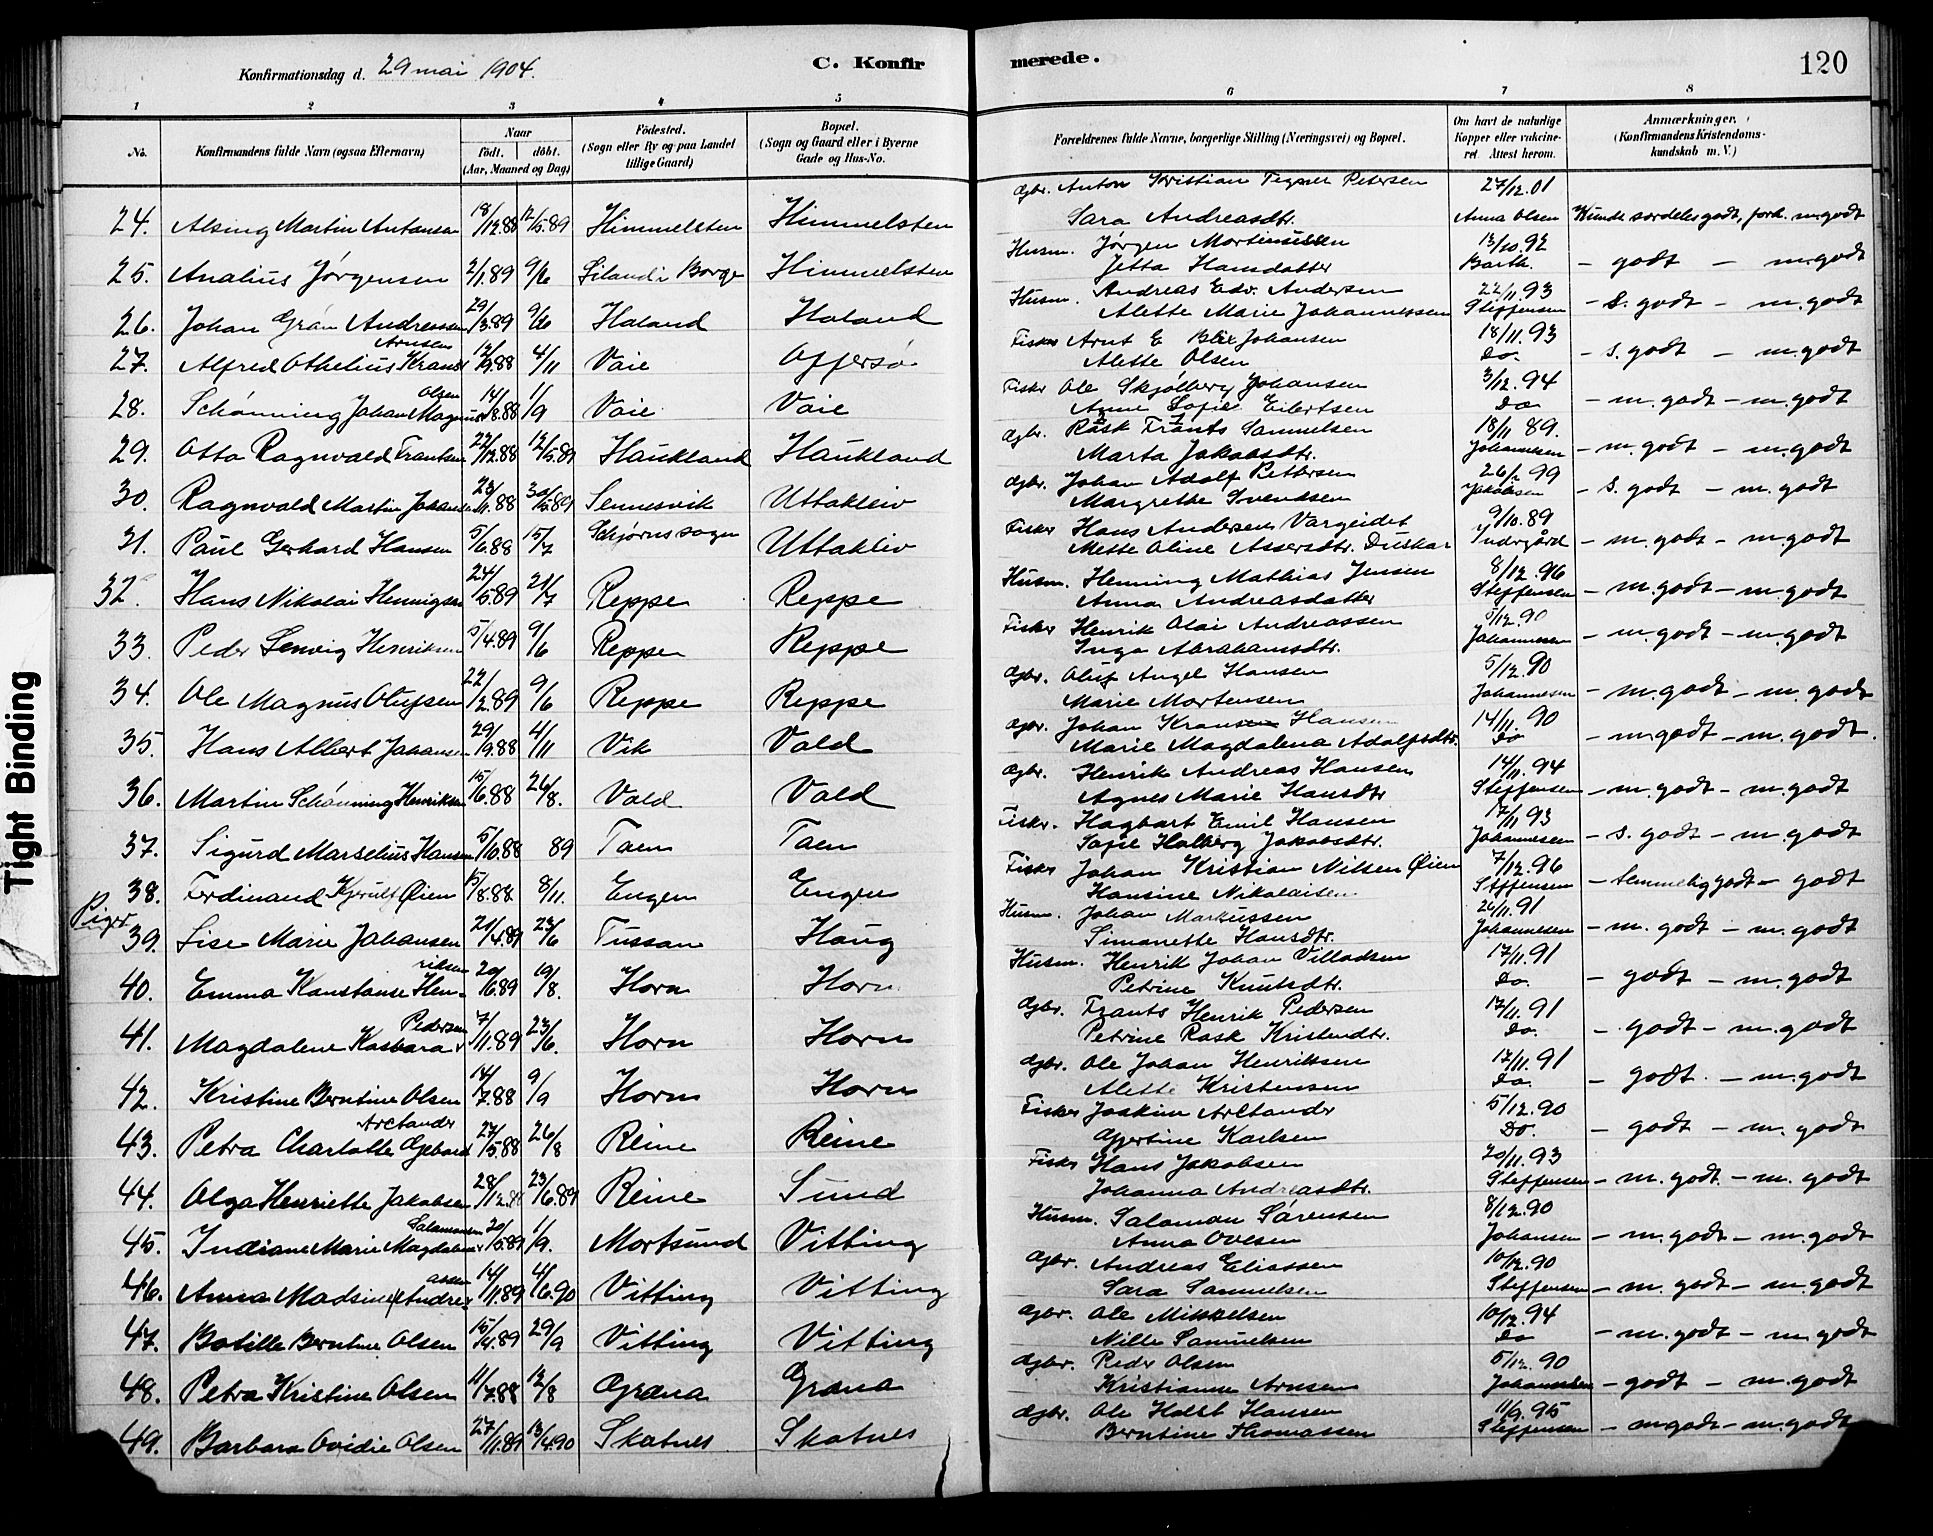 Konfirmationsdag d. 29 mai 1904.
C. Konfir
merede.
120
1 2 3 4 5 6 7 8
No.
Konfirmandens fulde Navn (ogsaa Efternavn)
Naar
födt. döbt.
(Aar, Maaned og Dag)
Födested.
(Sogn eller By og paa Landet
tillige Gaard)
Bopæl.
(Sogn og Gaard eller i Byerne
Gade og Hus-No.
Forældrenes fulde Navne, borgerlige Stilling (Næringsvei) og Bopæl.
Om havt de naturlige
Kopper eller vakcine-
ret Attest herom.
Anmærkninger.
(Konfirmandens Kristendoms-
kundskab m. V.)
Gbr. Anton Kristian Tegner Petersen 27/12.01
24. Alsing Martin Antonsen 18/12.88 12/5.89 Himmelsten Himmelsten Sara Andreasdtr. Anna Olsen Kundk særdeles godt, forh. m.godt
Husm. Jørgen Martinussen 13/10.92
25. Analius Jørgensen 2/1.89 9/6 Liland i Borge Himmelsten Jetta Hansdatter Barth. - godt - m.godt
Husm. Andreas Edv. Andersen 22/11.93
26. Johan Grøn Andreassen 29/3.89 9/6 Haland Haland Alette Marie Johannessen Steffensen - s. godt - m.godt
Arnsen
Fisker Arnt E Blix Johansen 18/11.93
27. Alfred Othelius Krans 12/9.88 4/11 Vaie Offersø Alette Olsen Do. - s. godt - m.godt
Olsen
Fisker Ole Skjølberg Johansen 3/12.94
28. Schønning Johan Magnus 14/8.88 1/9 Vaie Vaie Anne Sofie Eilertsen Do - m. godt - m.godt
Gbr. Rask Frants Samuelsen 18/11 89.
29. Otto Ragnvald Frantsen 22/12.88 12/5.89 Haukland Haukland Marta Jakobsdtr. Johannesen - m. godt - m.godt
Gbr. Johan Adolf Pettersen 26/2.99
30. Ragnvald Martin Johansen 23/11.88 30/5.89 Sennesvik Uttakleiv Margrethe Svendsen Jakobsen - s. godt - m.godt
Fisker Hans Andersen Vargeidet 9/10.89
31. Paul Gerhard Hansen 5/6.88 15/7 Schjørns sogn Uttakliv Mette Oline Assersdtr. Yndrgård - m. godt - m. godt
Husm. Henning Mathias Jensen 8/12.96
32. Hans Nikolai Hennigsen 24/5.89 21/7 Reppe Reppe Anna Andreasdatter Steffensen - m. godt - m. godt
Fisker Henrik Olai Andreassen 5/12.90
33. Peder Lenvig Henriksen 5/4.89 9/6 Reppe Reppe Inga Abrahamsdtr. Johannesen - m. godt - m. godt
Gbr. Oluf Angel Hansen 5/12.90
34. Ole Magnus Olufsen 22/2.89 9/6 Reppe Reppe Marie Mortensen Johannesen - m. godt - m. godt
Gbr. Johan Kransen Hansen 14/11.90
35. Hans Albert Johansen 29/9.88 4/11 Vik Vold Marie Magdalena Adolfsdtr. Do - m. godt - m. godt.
Gbr. Henrik Andreas Hansen 14/11.94
36. Martin Schønning Henriksen 15/6.88 26/8. Vold Vold Agnes Marie Hansdtr Steffensen - m. godt - m. godt
Fiskr. Hagbart Emil Hansen 17/11 93
37. Sigurd Marselius Hansen 5/10.88 89 Taen Taen Sofie Holberg Jakobsdtr. Johannesen - s. godt - m. godt
Fisker Johan Kristian Nilsen Øien 7/12.96
38. Ferdinand Kjerulf Øien 15/8.88. 8/11. Engen Engen Hansine Nikolaisen Steffensen - temmelig godt - godt
Piger
Husm. Johan Markussen 26/11.91
39. Lise Marie Johansen 21/4.89 23/6 Tussan Haug Simonette Hansdtr. Johannesen - m. godt - m. godt
riksen
Husm. Henrik Johan Villadsen 17/11.91
40. Emma Konstanse Hen- 20/6.89 19/8. Horn Horn Petrine Knutsdtr. Do. - godt - m. godt
Pedersen
Gbr. Frants Henrik Pedersen 17/11.91
41. Magdalene Kasbara 7/11.89 23/6. Horn Horn Petrine Rask Kristendtr. Do. - godt - m. godt
Gbr. Ole Johan Henriksen 17/11.91
42. Kristine Berntine Olsen 14/7.88 9/9 Horn Horn Alette Kristensen Do. - godt. - m. godt
Arctander
Fisker Joakim Arctander 5/12.90
43. Petra Charlotte Gjebord 27/5.88 26/8 Reine Reine Gjertine Karlsen Do. - godt - m. godt
Fiskr Hans Jakobsen 20/11.93
44. Olga Henriette Jakobsen 28/12.88 23/6.89 Reine Sund Johanna Andreasdtr. Steffensen - m. godt. - m. godt
Salamonsen
Husm. Salomon Sørensen 8/12.90
45. Indiane Marie Magdalene 20/5.89 1/9. Mortsund Vitting Anna Ovesen Johansen - m. godt - m. godt
assen
Gbr. Andreas Eliassen 10/12.90
46. Anna Madsine Andre 14/11.89 4/6.90 Vitting Vitting Sara Samuelsen Steffensen - m. godt - m. godt
Gbr. Ole Mikkelsen 10/12.94
47. Botille Berntine Olsen 15/4.89 29/9 Vitting Vitting Nille Samuelsen Do - m. godt - m. godt
Gbr. Peder Olsen 5/12.90
48. Petra Kristine Olsen 11/7.88 12/8 Grøna Grøna Kristianne Arnsen Johannesen - godt - m. godt
Gbr. Ole Holst Hansen 11/9.95
49. Barbara Ovidie Olsen 27/11.89 13/4.90 Skotnes Skotnes Berntine Thomassen Steffensen - m. godt - m. godt
Tight Binding